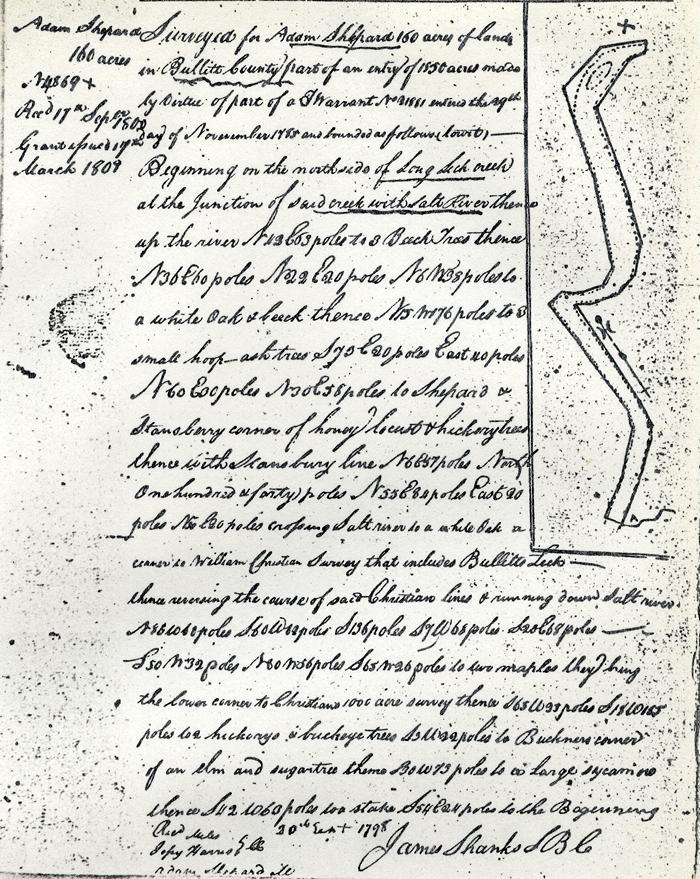 Adam Shepard
160 acres
N4869 +
Recd 17th Sepbr 1800
Grant issued
March 1809
Surveyed for Adam Shepard 160 acres of land
in Bullitt County part of an entry of 1850 acres made
by Virtue of part of a T Warrant No entered the 29th
day of November 1785 and bounded as follows (towit)
Beginning on the north side of Long Lick creek
at the Junction of said creek with Salt River thence
up the river N42E63 poles to 3 Beech Trees thence
N36E60 poles N22E20 poles N6W38 poles to
a white Oak & beech thence N5W76 poles to 3
small hoop-ash trees S73E20 poles East 40 poles
N60E00 poles N30E58 poles to Shepard &
Stansberry corner of honey locust & hickory trees
thence with Stansbury line N6E57 poles North
One hundred & forty poles N55E84 poles East 20
poles poles crossing Salt river to a white Oak a
corner to William Christian Survey that includes Bullitts Lick
thence reversing the course of said Christian lines & running down Salt river
poles poles S136 poles S7W68 poles S28E68 poles
S50W32 poles N80W56 poles S65W26 poles to two maples they being
the lower corner to Christians 1000 acre survey thence S65W93 poles S18W165
poles to 2 hickorys & buckeye trees poles to Buckners corner
of an elm and sugartree thence poles to a large sycamore
thence S42W60 poles to a stake S54E24 poles to the Beginning
30th 1798
Harris
James Shanks S B C
Adam Shepard